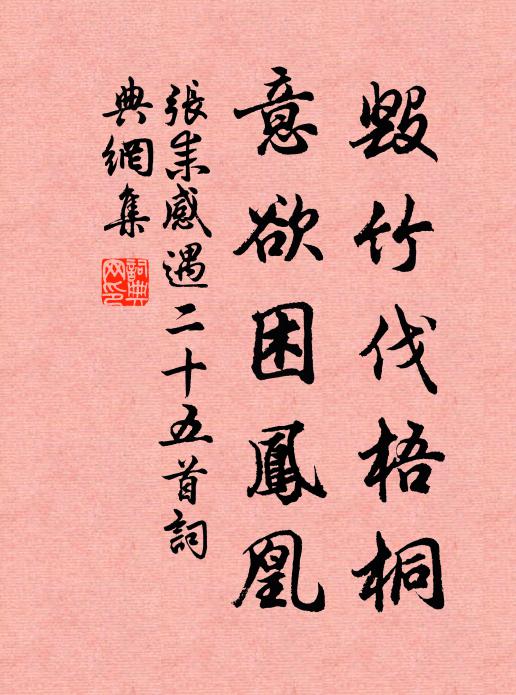 毀竹伐梧桐
意欲困鳳凰
張耒感遇二十五首詞
典網集
詞典網印